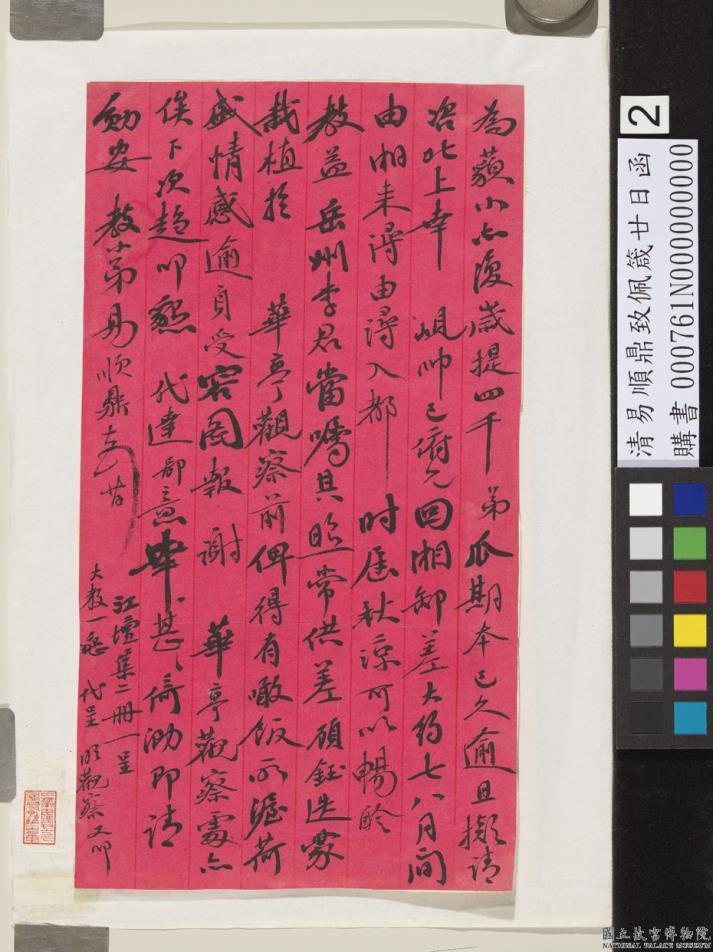 為蘋小亦復歲提四千弟瓜期本已久逾且擬請
咨北上幸 峴帥已俯允回湘卸差大約七八月間
由湘來潯由潯入都 时屆秋涼可以暢聆
教益岳州李君當囑其照常供差碩鈺迭蒙
栽植於 華亭觀察前俾得有噉飯而濫荷
盛情感逾身受容圖報謝 華亭觀察處亦
俟下次趨叩懇 代達鄙意肆甚甚佈泐即請
勛安 教小弟易順鼎 廿
江壇集二冊一呈
大教一懇 代呈 觀察又叩
2
清易順鼎致佩箴廿日函
購書 000761N000000000
國立故宮博物院
NATIONAL PALACE MUSEUM